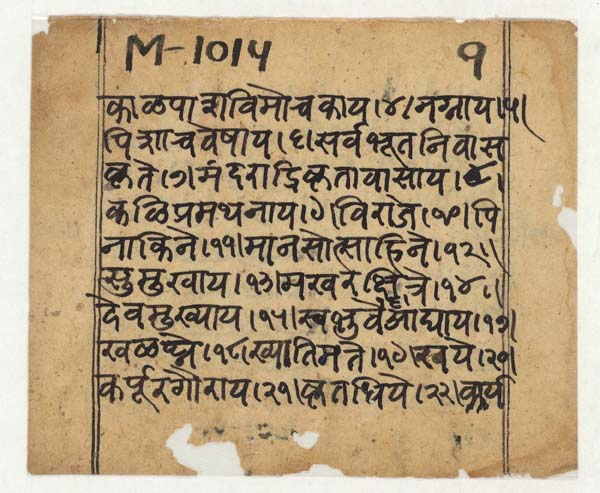 M-1014 १
काळपाशविमोचकाय।४। नग्नाय।५।
पिशाचवेषाय।६। सर्वभूतनिवास
कृते।७। मंदराद्रिकृतावासाय।८।
कळिप्रमथनाय।९। विराजे।१०। पि
नाकिने।११। मानसोत्साहिने।१२।
सुमुखाय।१३। मखरक्षित्रे।१४।
देवमुख्याय।१५। १७।
खळघ्ने।१८। ख्यातिमते।१९। २०।
कर्पूरगौराय।२१। कृतधिये।२२। कार्य